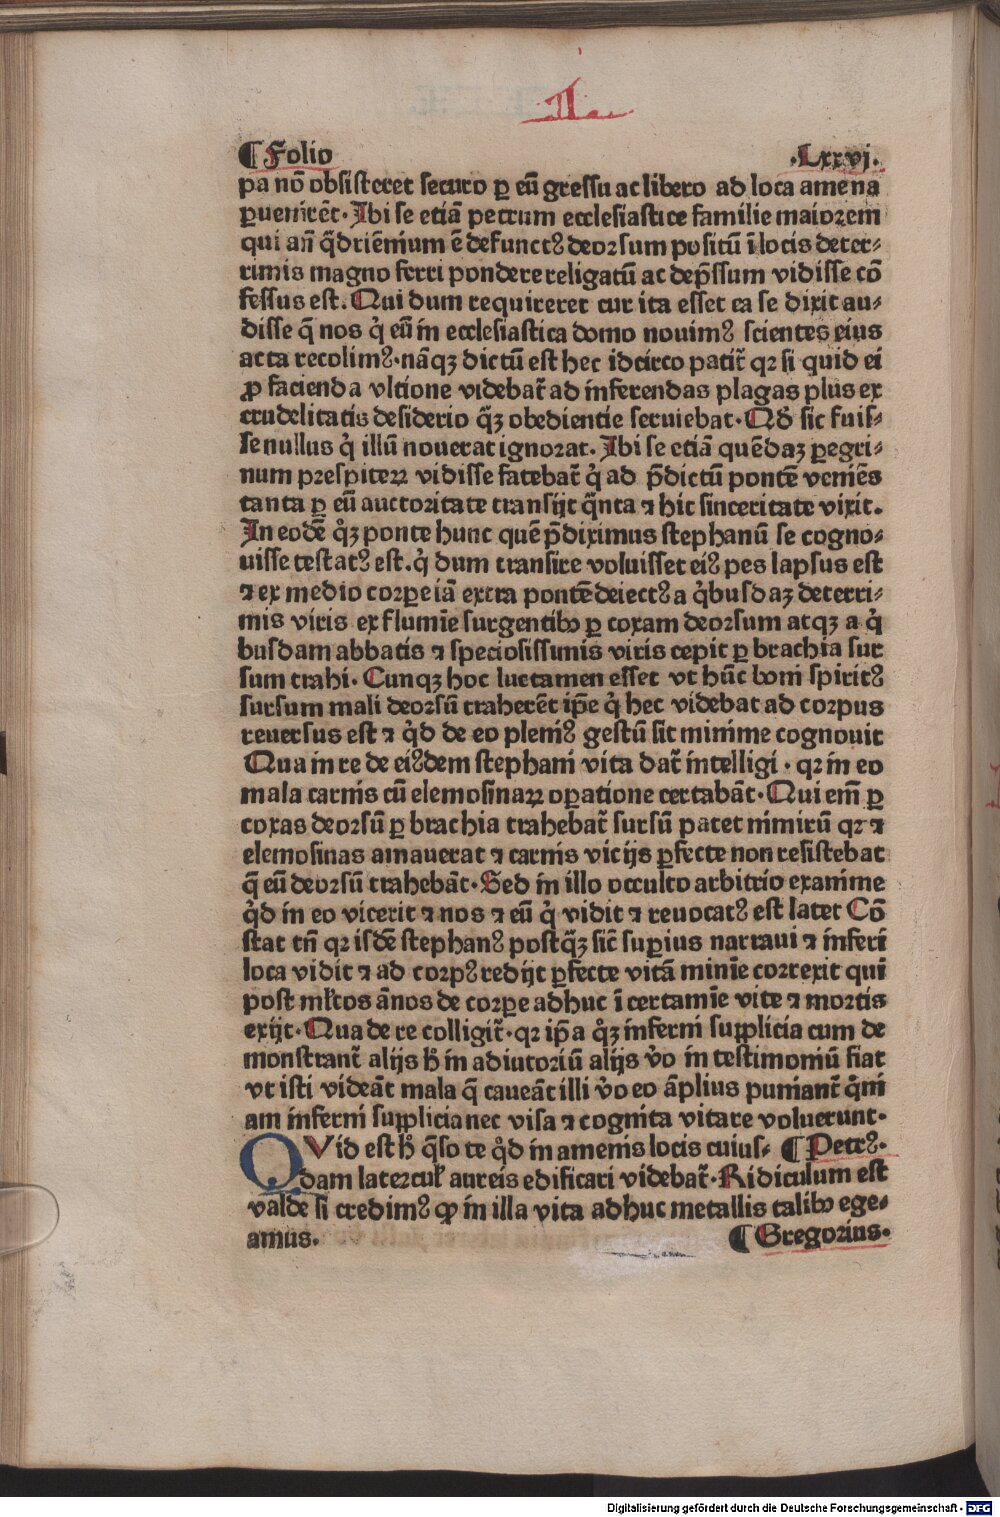 II.
¶ Folio .Lxxvj.
pa nō obsisteret securo ꝑ eū gressu ac libero ad loca amena
ꝑuenirēt. Ibi se etiā petrum ecclesiastice familie maiorem
qui an̄ q̄driēnium ē defunctꝰ deorsum positū ī locis deter⸗
rimis magno ferri pondere religatū ac dep̄ssum vidisse cō
fessus est. Qui dum requireret cur ita esset ea se dixit au⸗
disse q̄ nos q̇ eū in ecclesiastica domo nouimꝰ scientes eius
acta recolimꝰ. nāqꝫ dictū est hec idcirco patit̄ qꝛ si quid ei
ꝓ facienda vltione videbat̄ ad inferendas plagas plus ex
crudelitatis desiderio q̄ꝫ obedientie seruiebat. Qd̄ sic fuis⸗
se nullus q̇ illū nouerat ignorat. Ibi se etiā quēdaꝫ ꝑegri⸗
num prespiteꝝ vidisse fatebat̄ q̇ ad p̄dictū pontē veniēs
tanta ꝑ eū auctoritate transijt q̄nta ⁊ hic sinceritate vixit.
In eodē q̇ꝫ ponte hunc quē p̄diximus stephanū se cogno⸗
uisse testatꝰ est. q̇ dum transire voluisset eiꝰ pes lapsus est
⁊ ex medio corꝑe iā extra pontē deiectꝰ a q̇busdaꝫ deterri⸗
mis viris ex flumīe surgentibꝰ ꝑ coxam deorsum atqꝫ a q̇
busdam abbatis ⁊ speciosissimis viris cepit ꝑ brachia sur
sum trahi. Cunqꝫ hoc luctamen esset vt hūc boni spiritꝰ
sursum mali deorsū traherēt ip̄e q̇ hec videbat ad corpus
reuersus est ⁊ q̇d de eo pleniꝰ gestū sit minime cognouit
Qua in re de eiꝰdem stephani vita dat̄ intelligi. qꝛ in eo
mala carnis cū elemosinaꝝ oꝑatione certabāt. Qui em̄ ꝑ
coxas deorsū ꝑ brachia trahebat̄ sursū patet nimirū qꝛ ⁊
elemosinas amauerat ⁊ carnis vicijs ꝑfecte non resistebat
q̄ eū deorsū trahebāt. Sed in illo occulto arbitrio examine
q̇d in eo vicerit ⁊ nos ⁊ eū q̇ vidit ⁊ reuocatꝰ est latet Cō
stat tn̄ qꝛ isdē stephanꝰ postq̄ꝫ sic̄ suꝑius narraui ⁊ inferī
loca vidit ⁊ ad corpꝰ redijt ꝑfecte vitā minīe correxit qui
post ml̄tos ānos de corꝑe adhuc ī certamīe vite ⁊ mortis
exijt. Qua de re colligit̄. qꝛ ip̄a q̇ꝫ inferni supplicia cum de
monstrant̄ alijs h̄ in adiutoriū alijs v̄o in testimoniū fiat
vt isti videāt mala q̄ caueāt illi v̄o eo āplius puniant̄ q̇ni
am inferni supplicia nec visa ⁊ cognita vitare voluerunt.
QVid est h̄ q̄so te q̇d in amenis locis cuius⸗ ¶ Petrꝰ.
dam latercul̄ aureis edificari videbat̄. Ridiculum est
valde si credimꝰ ꝙ in illa vita adhuc metallis talibꝰ ege⸗
amus. ¶ Gregorius.
Digitalisierung gefördert durch die Deutsche Forschungsgemeinschaft - DFG